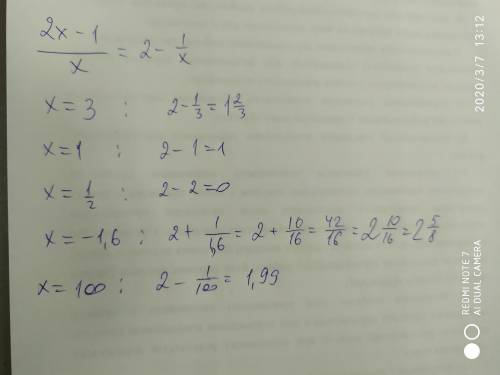 (2x - 1)/x = 2 - 1/x
x = 3 : 2 - 1/3 = 1 2/3
x = 1 : 2 - 1 = 1
x = 1/2 : 2 - 2 = 0
x = -1,6 : 2 + 1/1,6 = 2 + 10/16 = 42/16 = 2 10/16 = 2 5/8
x = 100 : 2 - 1/100 = 1,99
2020/3/7 13:12
REDMI NOTE 7
AI DUAL CAMERA